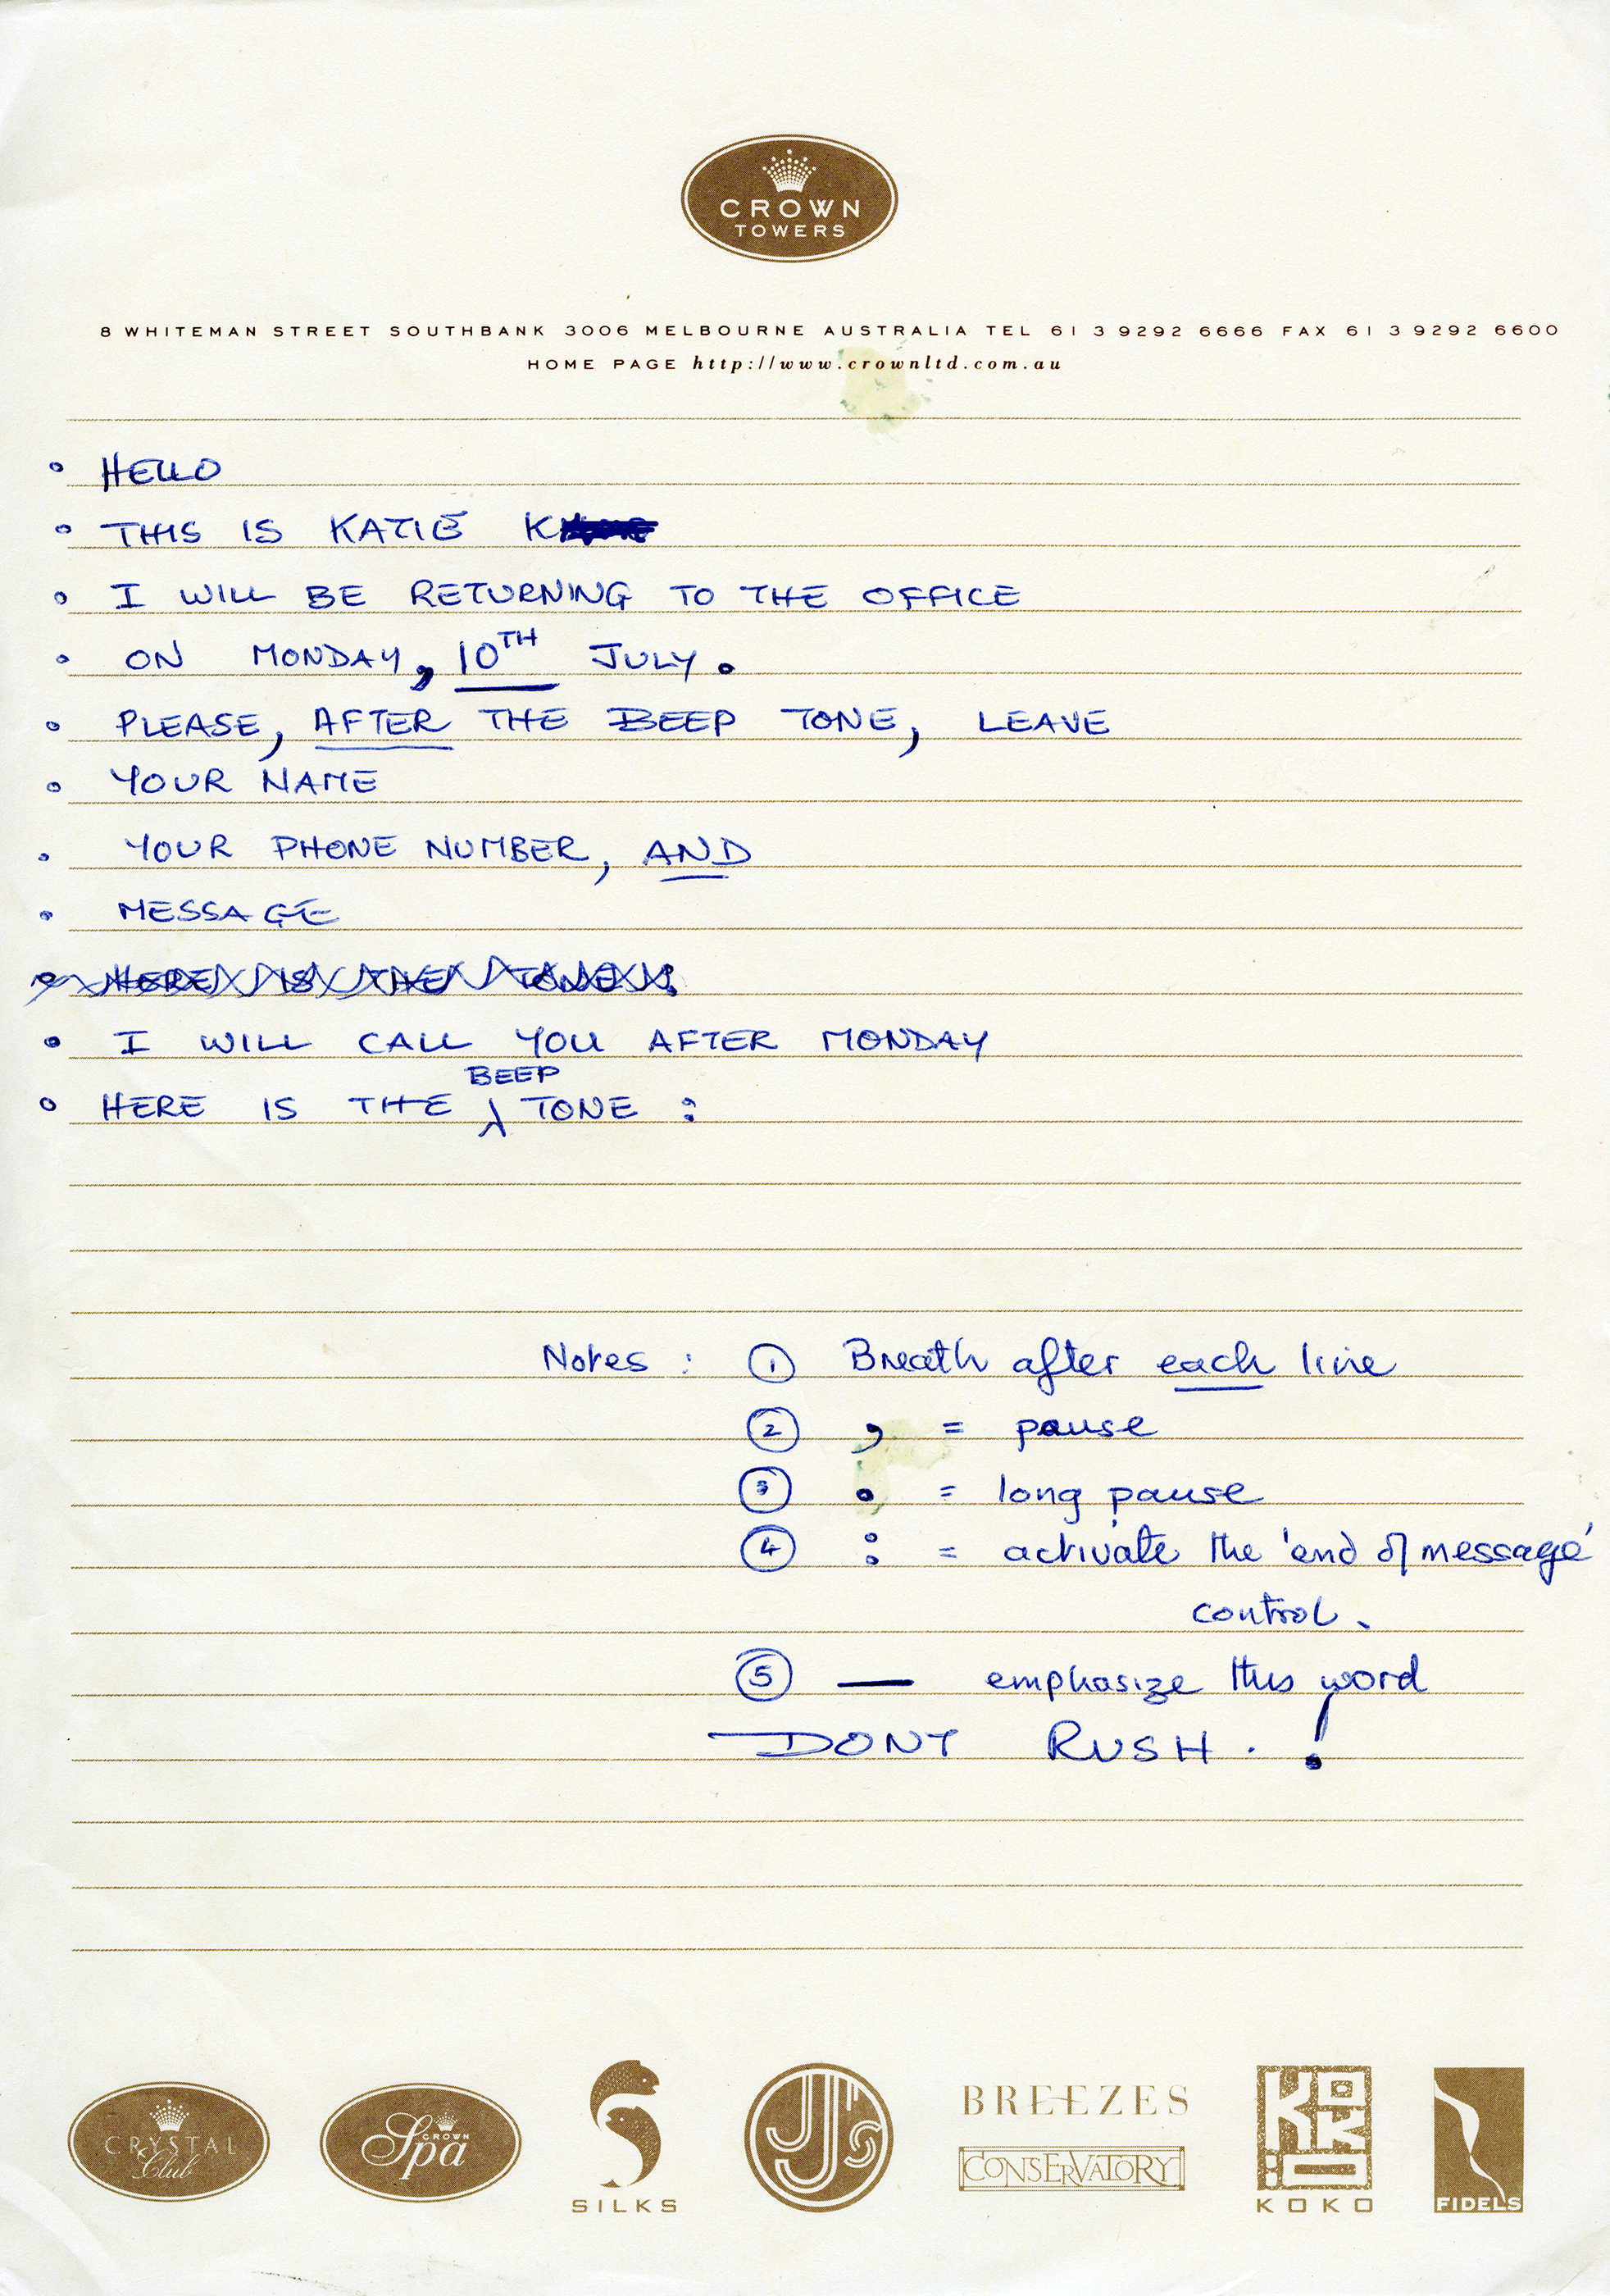 CROWN
TOWERS
8 WHITEMAN STREET SOUTHBANK 3006 MELBOURNE AUSTRALIA TEL 61 3 9292 6666 FAX 61 3 9292 6600
HOME PAGE http://www.crownltd.com.au
• HELLO
• THIS IS KATIE K
• I WILL BE RETURNING TO THE OFFICE
• ON MONDAY, 10TH JULY.
• PLEASE, AFTER THE BEEP TONE, LEAVE
• YOUR NAME
• YOUR PHONE NUMBER, AND
• MESSAGE
• HERE IS THE TONE :
• I WILL CALL YOU AFTER MONDAY
BEEP
• HERE IS THE ⁁ TONE :
Notes : ① Breath after each line
② , = pause
③ . = long pause
④ : = activate the 'end of message'
control.
⑤ — emphasize this word
DONT RUSH . !
CRYSTAL
Club
CROWN
Spa
SILKS
JJ's
BREEZES
CONSERVATORY
KOKO
KOKO
FIDELS